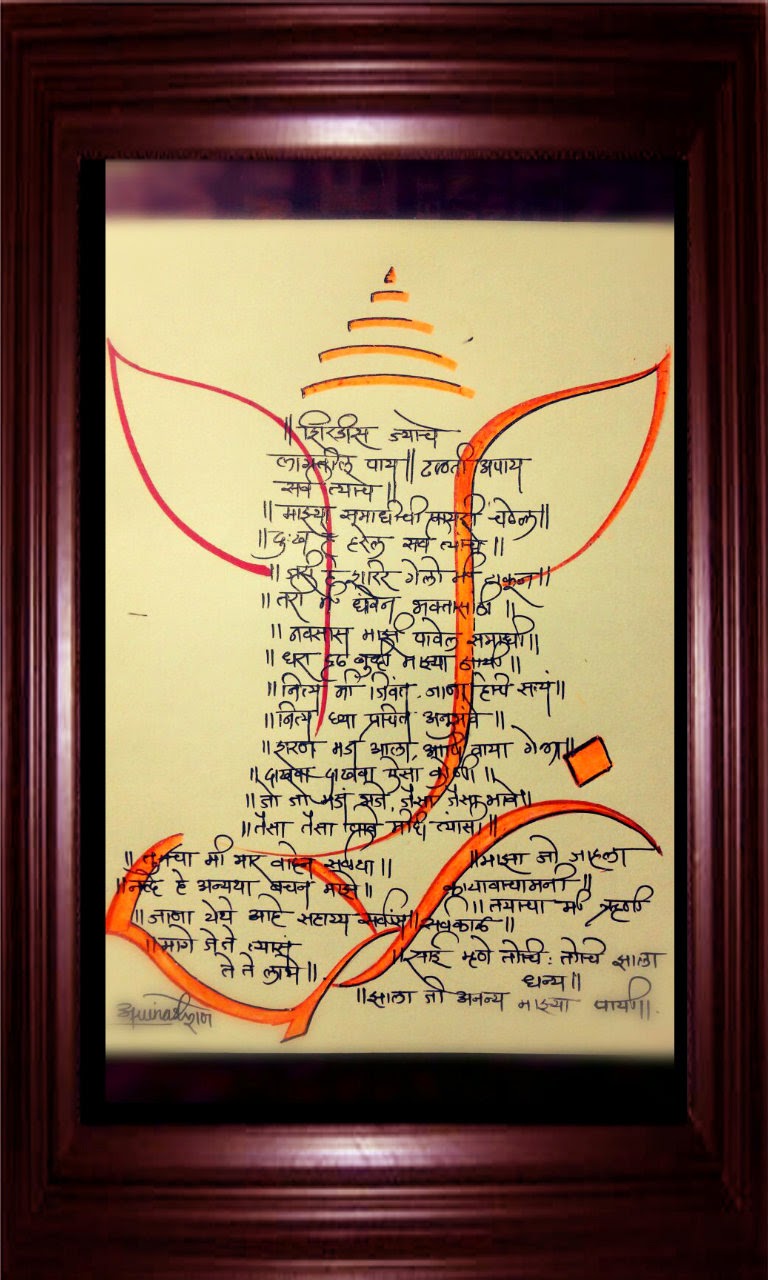 ॥ शिरडीस ज्याचे
लागतील पाय ॥ टळती अपाय
सर्व त्याचे ॥
॥ माझ्या समाधीची पायरी चढेल॥
॥दुःख हे हरेल सर्व त्याचे ॥
॥ जरी हे शरिर गेलो मी टाकून॥
॥ तरी मी धावेन भक्तासाठी ॥
॥ नवसास माझी पावेल समाधी॥
॥ धरा दृढ बुद्धी माझ्या ठायी ॥
॥ नित्य मी जिवंत जाणा हेचि सत्य॥
॥ नित्य घ्या प्रचित अनुभवे ॥
॥ शरण मज आला, आणि वाया गेला॥
॥ दाखवा दाखवा ऐसा कोणी ॥
॥ जो जो मज भजे, जैसा जैसा भावे॥
॥ तैसा तैसा पावे मीही त्यासी ॥
॥ तुमचा मी भार वाहेन सर्वथा ॥
॥ नव्हे हे अन्यथा वचन माझे ॥
॥ जाणा येथे आहे सहाय्य सर्वांस॥
॥ मागे जे ते त्यास
ते ते लाभे ॥
॥ माझा जो जाहला
कायावाचामनी ॥
॥ तयाचा मी ऋणी
सर्वकाळ ॥
॥ साई म्हणे तोचि: तोचि झाला
धन्य॥
॥झाला जो अनन्य माझ्या पायी॥